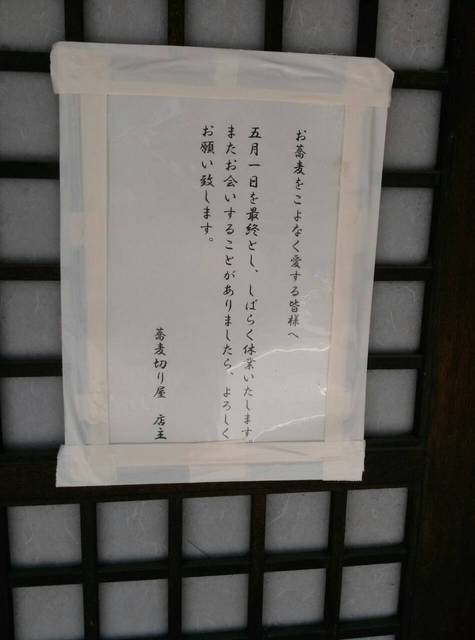 お蕎麦をこよなく愛する皆様へ
五月一日を最終とし、しばらく休業いたします。
またお会いすることがありましたら、よろしく
お願い致します。
蕎麦切り屋 店主